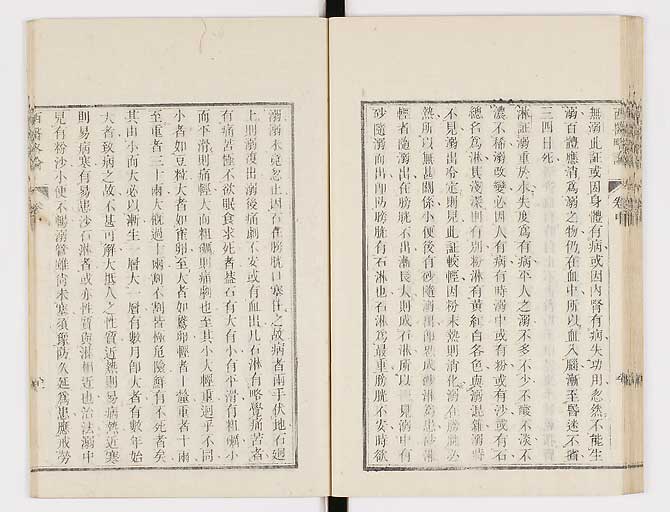 西醫略論
卷中
無溺此証或因身體有病或因內腎有病失功用忽然不能生
溺百體應消爲溺之物仍在血中所以血入腦漸至昏迷不省
三四日死
淋証溺重於水失度爲有病平人之溺不多不少不酸不淡不
濃不稀溺改變必因人有病有時溺中或有粉或有沙或有石
總名爲淋其淺深則有別粉淋有黃紅白各色與溺混雜溺時
不見溺出分定則見此証較輕因粉未熱則消化溺在膀胱必
熱所以無甚關係小便後有砂隨溺出即成砂淋爲患砂淋
輕者隨溺出在膀胱不出漸長大則成石淋所以 見溺中有
砂隨溺而出即防膀胱有石淋也石淋爲最重膀胱不安時欲
溺溺未竟忽止因石在膀胱口塞住之故病者兩手伏地石迴
上則溺復出溺後痛劇不安或有血出凡石淋有略覺痛苦者
有痛苦極不欲眠食求死者蓋石有大有小有平滑有粗礪小
而平滑則痛輕大而粗礪則痛劇也至其小大輕重迥乎不同
小者如豆粒大者如雀卵至大者如鵞卵輕者一錢重者十兩
至重者三十兩大槪過十兩割不割皆極危險鮮有不死者矣
其由小而大必以漸生一層大一層有數月卽大者有數年始
大者致病之故不甚可解大抵人之性質近熱則易病熱近寒
則易病寒有易患沙石淋者或亦性質與淋相近也治法溺中
見有粉沙小便不暢溺管雖尙未塞須隄防久延爲患應戒勞
西醫略論
卷中